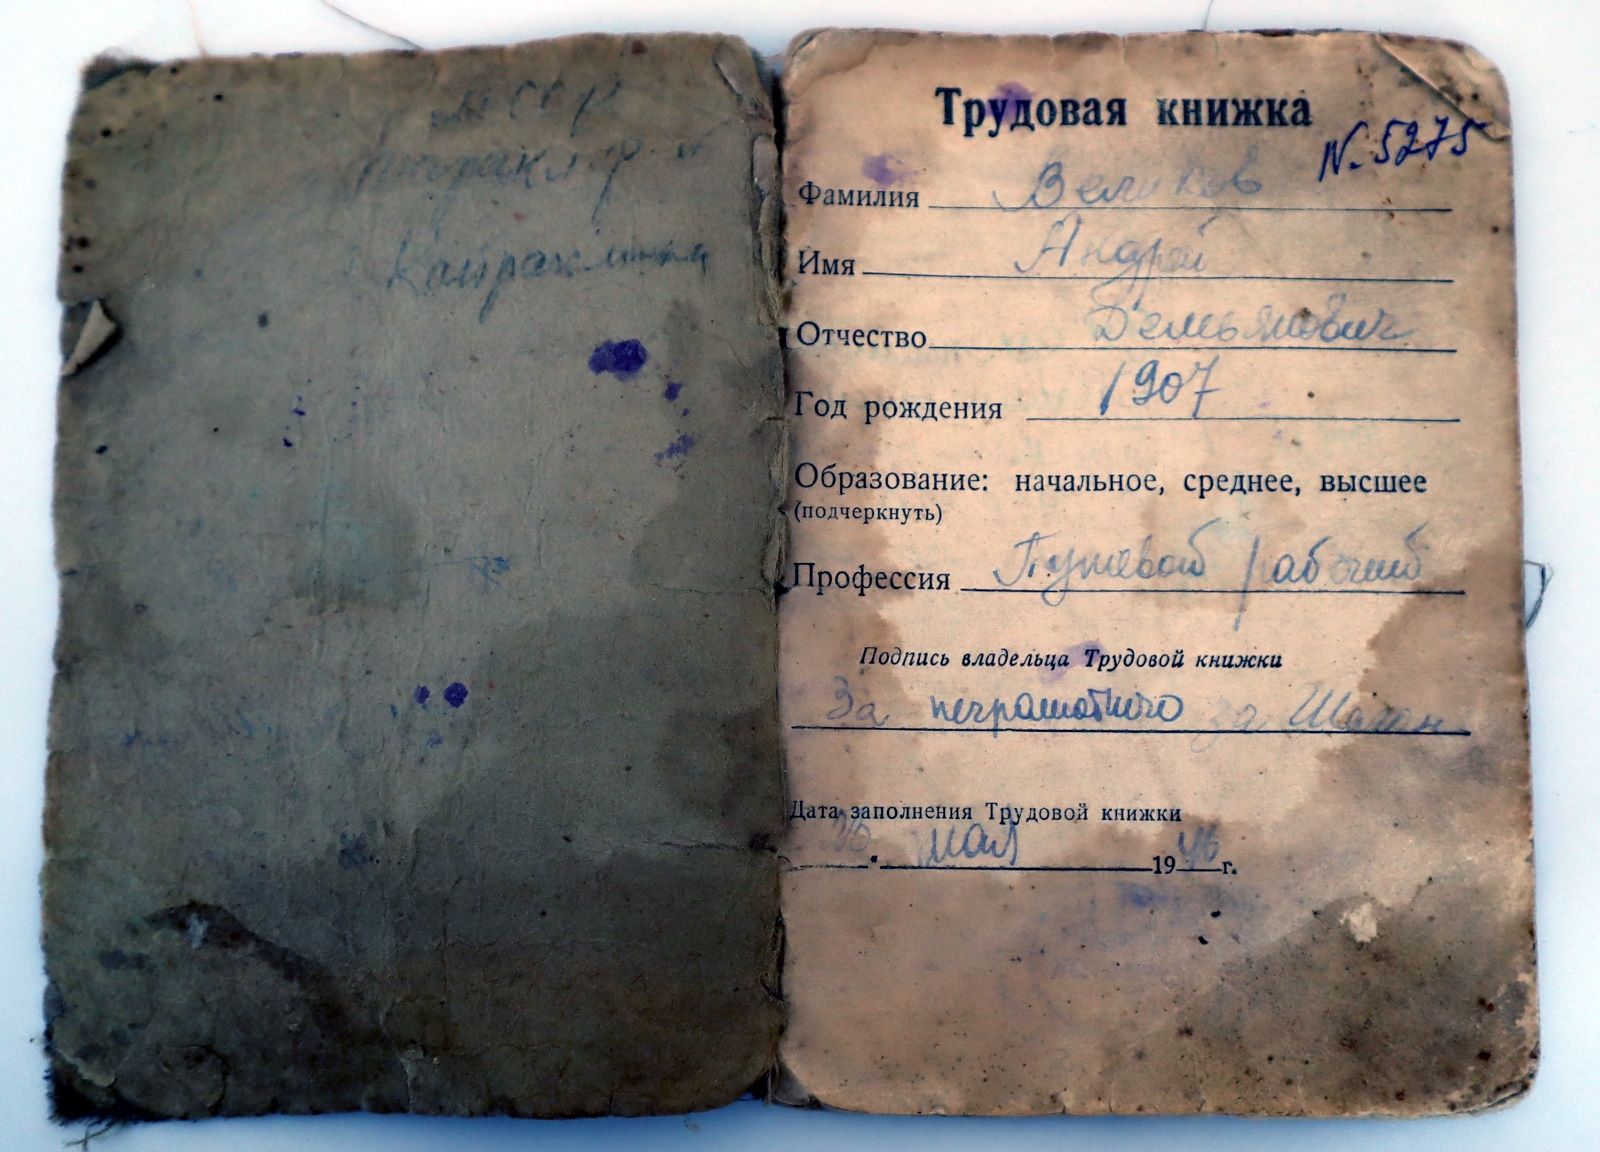 МССР
Трудовая книжка
N. 5275
Фамилия Великов
Имя Андрей
Отчество Демьянович
Год рождения 1907
Образование: начальное, среднее, высшее
(подчеркнуть)
Профессия Путевой рабочий
Подпись владельца Трудовой книжки
За неграмотного за
Дата заполнения Трудовой книжки
мая 1946 г.